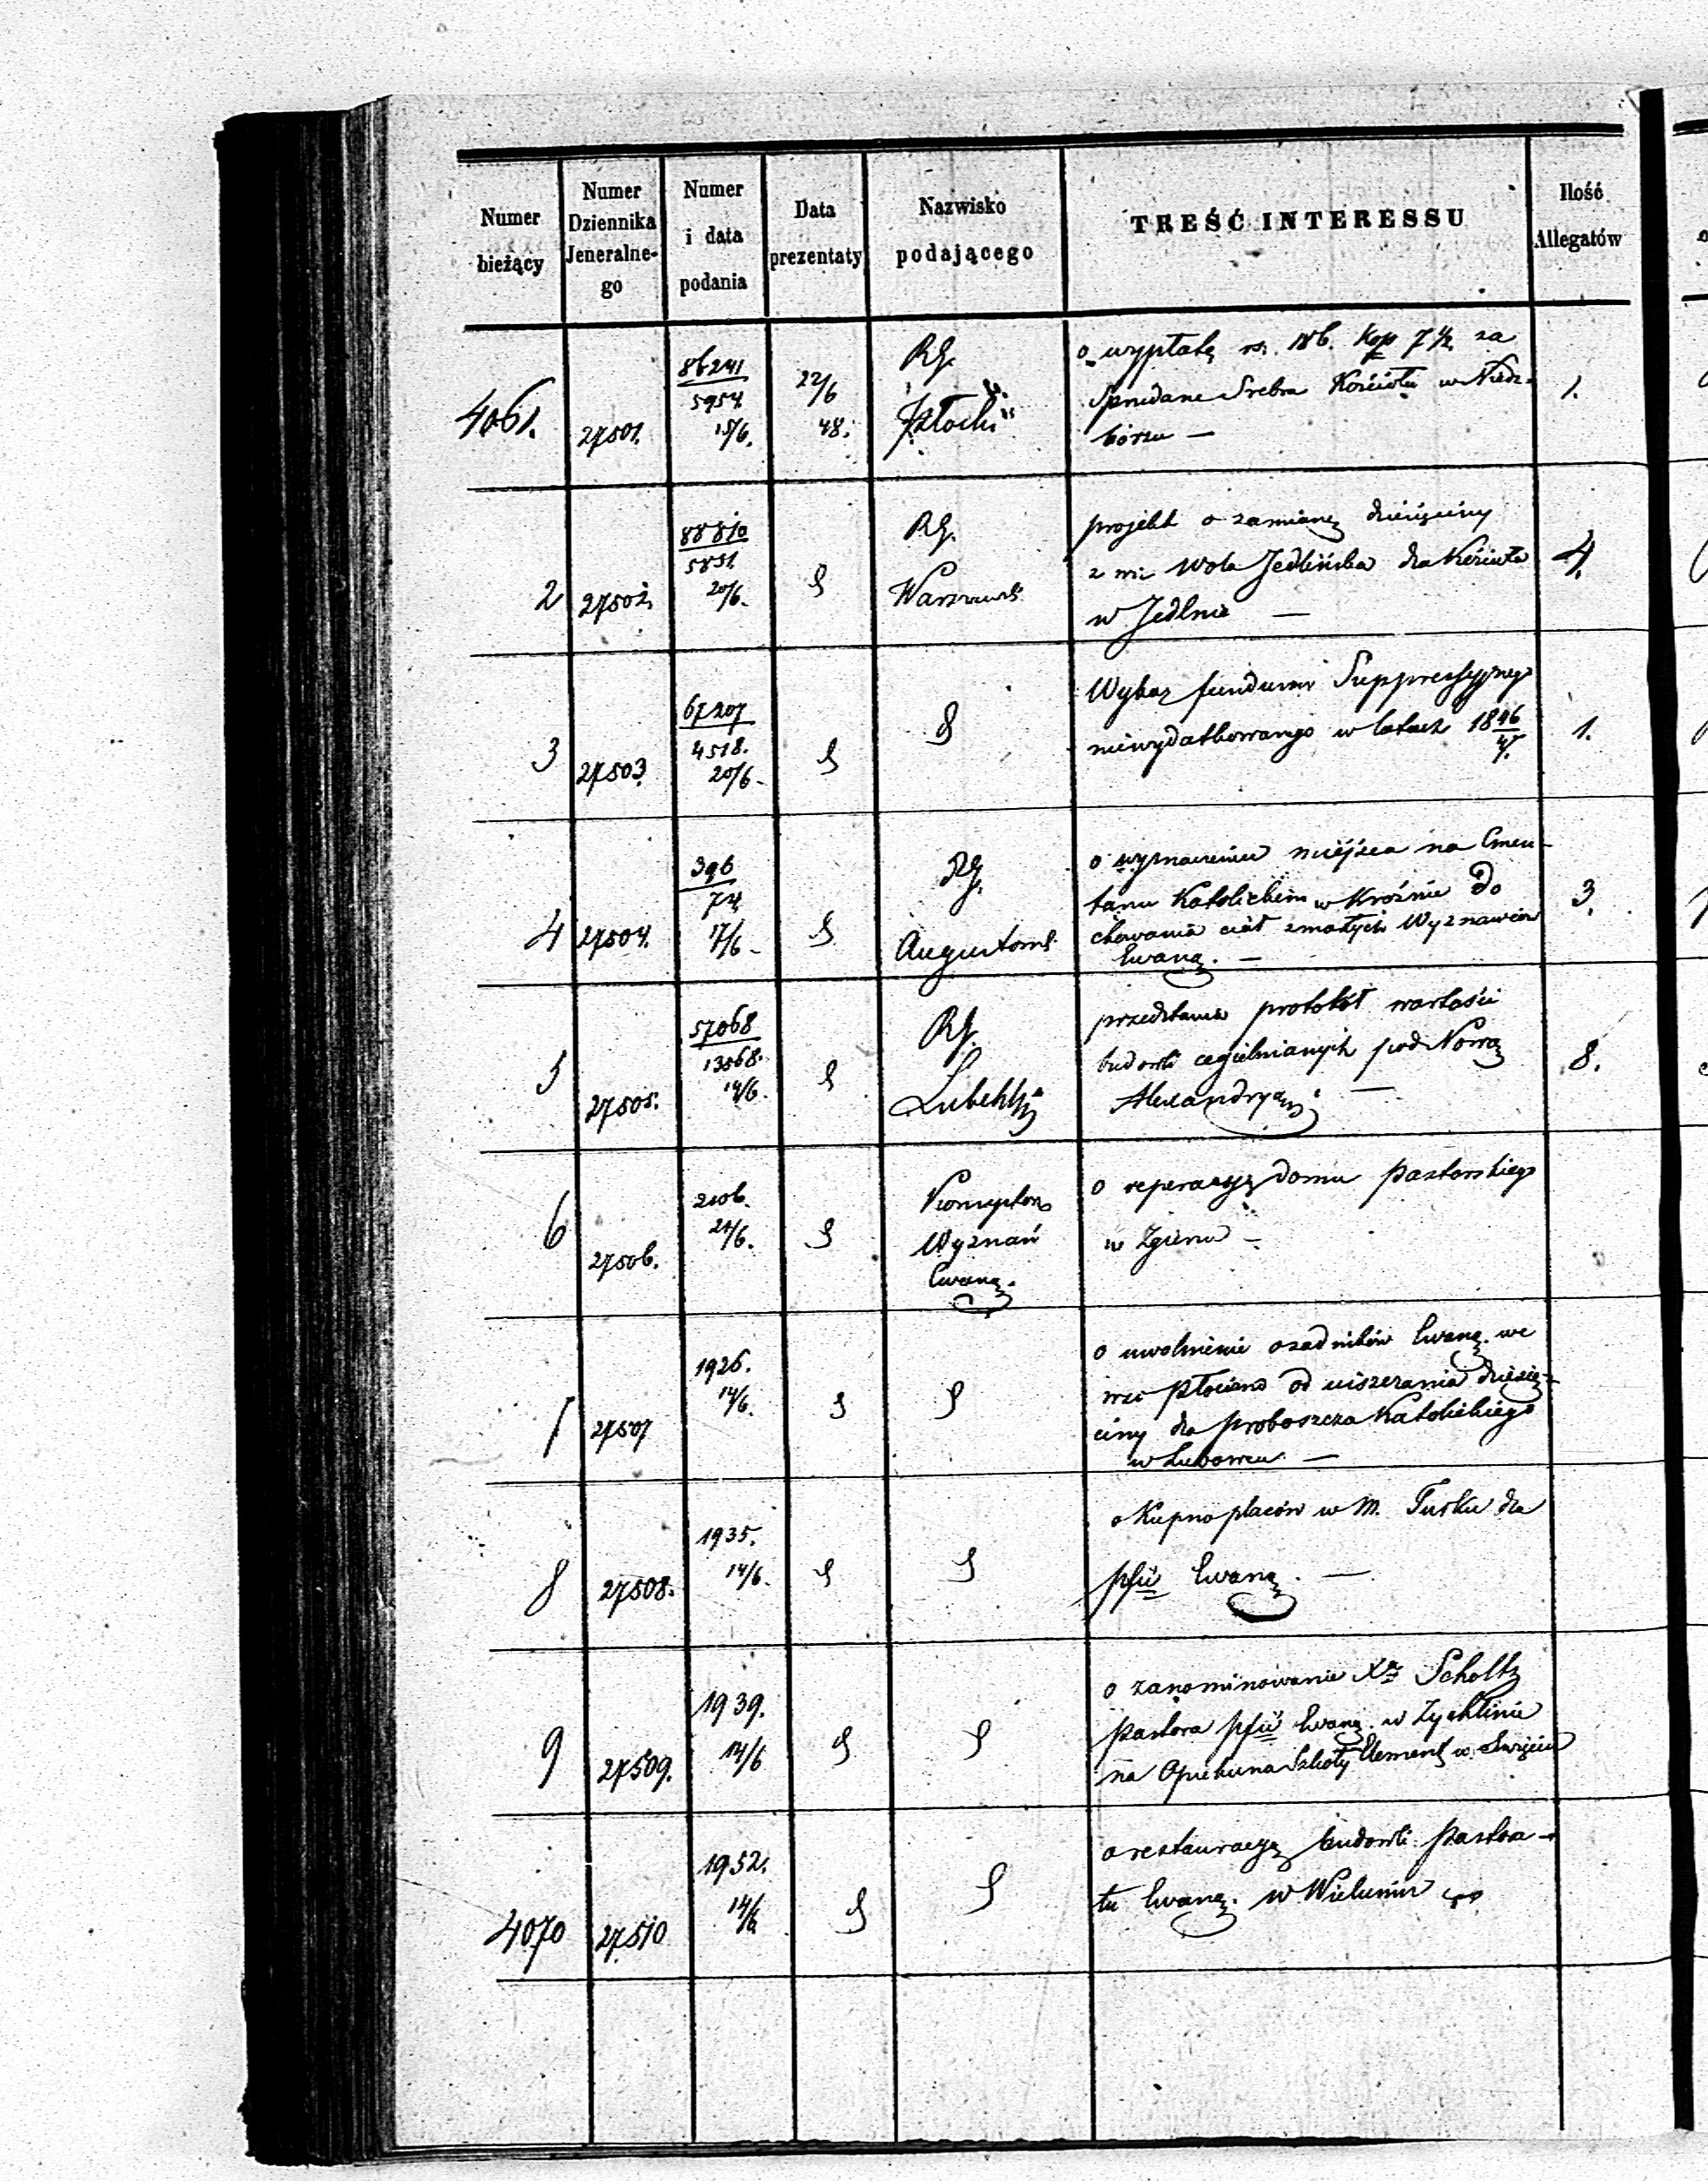 Numer bieżący
Numer Dziennika Jeneralne- go
Numer i data podania
Data prezentaty
Nazwisko podającego
TREŚĆ INTERESSU
Ilość Allegatów
4061.
27501.
86241
5954
15/6.
22/6
48.
RG.
Płocki
o wypłatę rs. 186. Kop 7 1/2 za
Sprzedane Srebra Kościoła w Niedz-
borzu —
1.
2
27502.
88810
5831.
20/6.
RG.
Warszaws.
projekt o zamianę dziesięciny
z wsi Wola Jedlińska dla Kościoła
w Jedlnie —
4.
3
27503.
67207
4518.
20/6.
Wykaz funduszu Suppressyjnego
niewydatkowanego w latach 1846/47.
1.
4
27504.
396
74
17/6.
RG.
Augustows.
o wyznaczenie miejsca na Cmen-
tarzu Katolickim w Krośnie do
chowania ciał zmarłych Wyznawców
Ewang. —
3.
5
27505.
57068
13568.
14/6.
RG.
Lubelski
przedstawia protokół wartości
budowli cegielnianych pod Nową
Alexandryą. —
8.
6
27506.
2106.
21/6.
Konsystorz
Wyznań
Ewang.
o reperacyę domu pastorskiego
w Zgierzu —
7
27507
1926.
14/6.
o uwolnienie osadników Ewang. we
wsi Płociczno od uiszczania dziesię-
ciny dla proboszcza Katolickiego
w Lubowcu —
8
27508.
1935.
14/6.
o Kupno placów w M. Turku dla
pfii Ewang. —
9
27509.
1939.
14/6
o zanominowanie Xa Scholtz
pastora pfii Ewang. w Zychlinie
na Opiekuna Szkoły Element w
4070
27510
1952.
14/6
o restauracyę budowli pastora-
tu Ewang. w Wieluniu